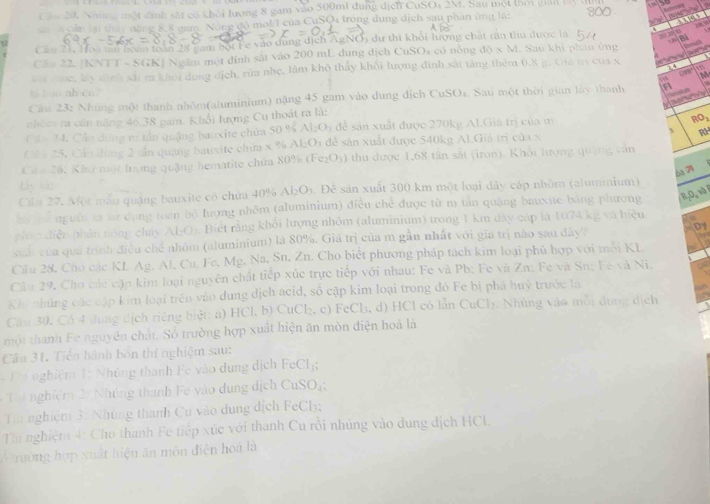 Câu 20. Nhúng một đinh sắt có khối lượng 8 gam vào 500ml dung dịch CuSO₄ 2M. Sau một thời gian lấy đinh
sắt ra cân lại thấy nặng 8,8 gam. Nồng độ mol/l của CuSO₄ trong dung dịch sau phản ứng là:
Câu 21. Hoà tan hoàn toàn 28 gam bột Fe vào dung dịch AgNO₃ dư thì khối lượng chất rắn thu được là 54
Câu 22. [KNTT - SGK] Ngâm một đinh sắt vào 200 mL dung dịch CuSO₄ có nồng độ x M. Sau khi phản ứng
kết thúc, lấy đinh sắt ra khỏi dung dịch, rửa nhẹ, làm khô thấy khối lượng đinh sắt tăng thêm 0,8 g. Giá trị của x
là bao nhiêu?
Câu 23: Nhúng một thanh nhôm(aluminium) nặng 45 gam vào dung dịch CuSO₄. Sau một thời gian lấy thanh
nhôm ra cân nặng 46,38 gam. Khối lượng Cu thoát ra là:
Câu 24. Cần dùng m tấn quặng bauxite chứa 50 % Al₂O₃ để sản xuất được 270kg Al.Giá trị của m
Câu 25. Cần dùng 2 tấn quặng bauxite chứa x % Al₂O₃ để sản xuất được 540kg Al.Giá trị của x
Câu 26. Khử một lượng quặng hematite chứa 80% (Fe₂O₃) thu được 1,68 tấn sắt (iron). Khối lượng quặng cần
lấy là:
Câu 27. Một mẫu quặng bauxite có chứa 40% Al₂O₃. Để sản xuất 300 km một loại dây cáp nhôm (aluminium)
người ta sử dụng toàn bộ lượng nhôm (aluminium) điều chế được từ m tấn quặng bauxite bằng phương
pháp điện phân nóng chảy Al₂O₃. Biết rằng khối lượng nhôm (aluminium) trong 1 km dây cáp là 1074 kg và hiệu
suất của quá trình điều chế nhôm (aluminium) là 80%. Giá trị của m gần nhất với giá trị nào sau đây?
Câu 28. Cho các KL Ag, Al, Cu, Fe, Mg, Na, Sn, Zn. Cho biết phương pháp tách kim loại phù hợp với mỗi KL
Câu 29. Cho các cặp kim loại nguyên chất tiếp xúc trực tiếp với nhau: Fe và Pb; Fe và Zn; Fe và Sn; Fe và Ni.
Khi nhúng các cặp kim loại trên vào dung dịch acid, số cặp kim loại trong đó Fe bị phá huỷ trước là
Câu 30. Có 4 dung dịch riêng biệt: a) HCl, b) CuCl₂, c) FeCl₃, d) HCl có lẫn CuCl₂. Nhúng vào mỗi dung dịch
một thanh Fe nguyên chất. Số trường hợp xuất hiện ăn mòn điện hoá là
Câu 31. Tiến hành bốn thí nghiệm sau:
- Thí nghiệm 1: Nhúng thanh Fe vào dung dịch FeCl₃;
- Thí nghiệm 2: Nhúng thanh Fe vào dung dịch CuSO₄;
Thí nghiệm 3: Nhúng thanh Cu vào dung dịch FeCl₃;
Thí nghiệm 4: Cho thanh Fe tiếp xúc với thanh Cu rồi nhúng vào dung dịch HCl.
trường hợp xuất hiện ăn mòn điện hoá là
800
Dy